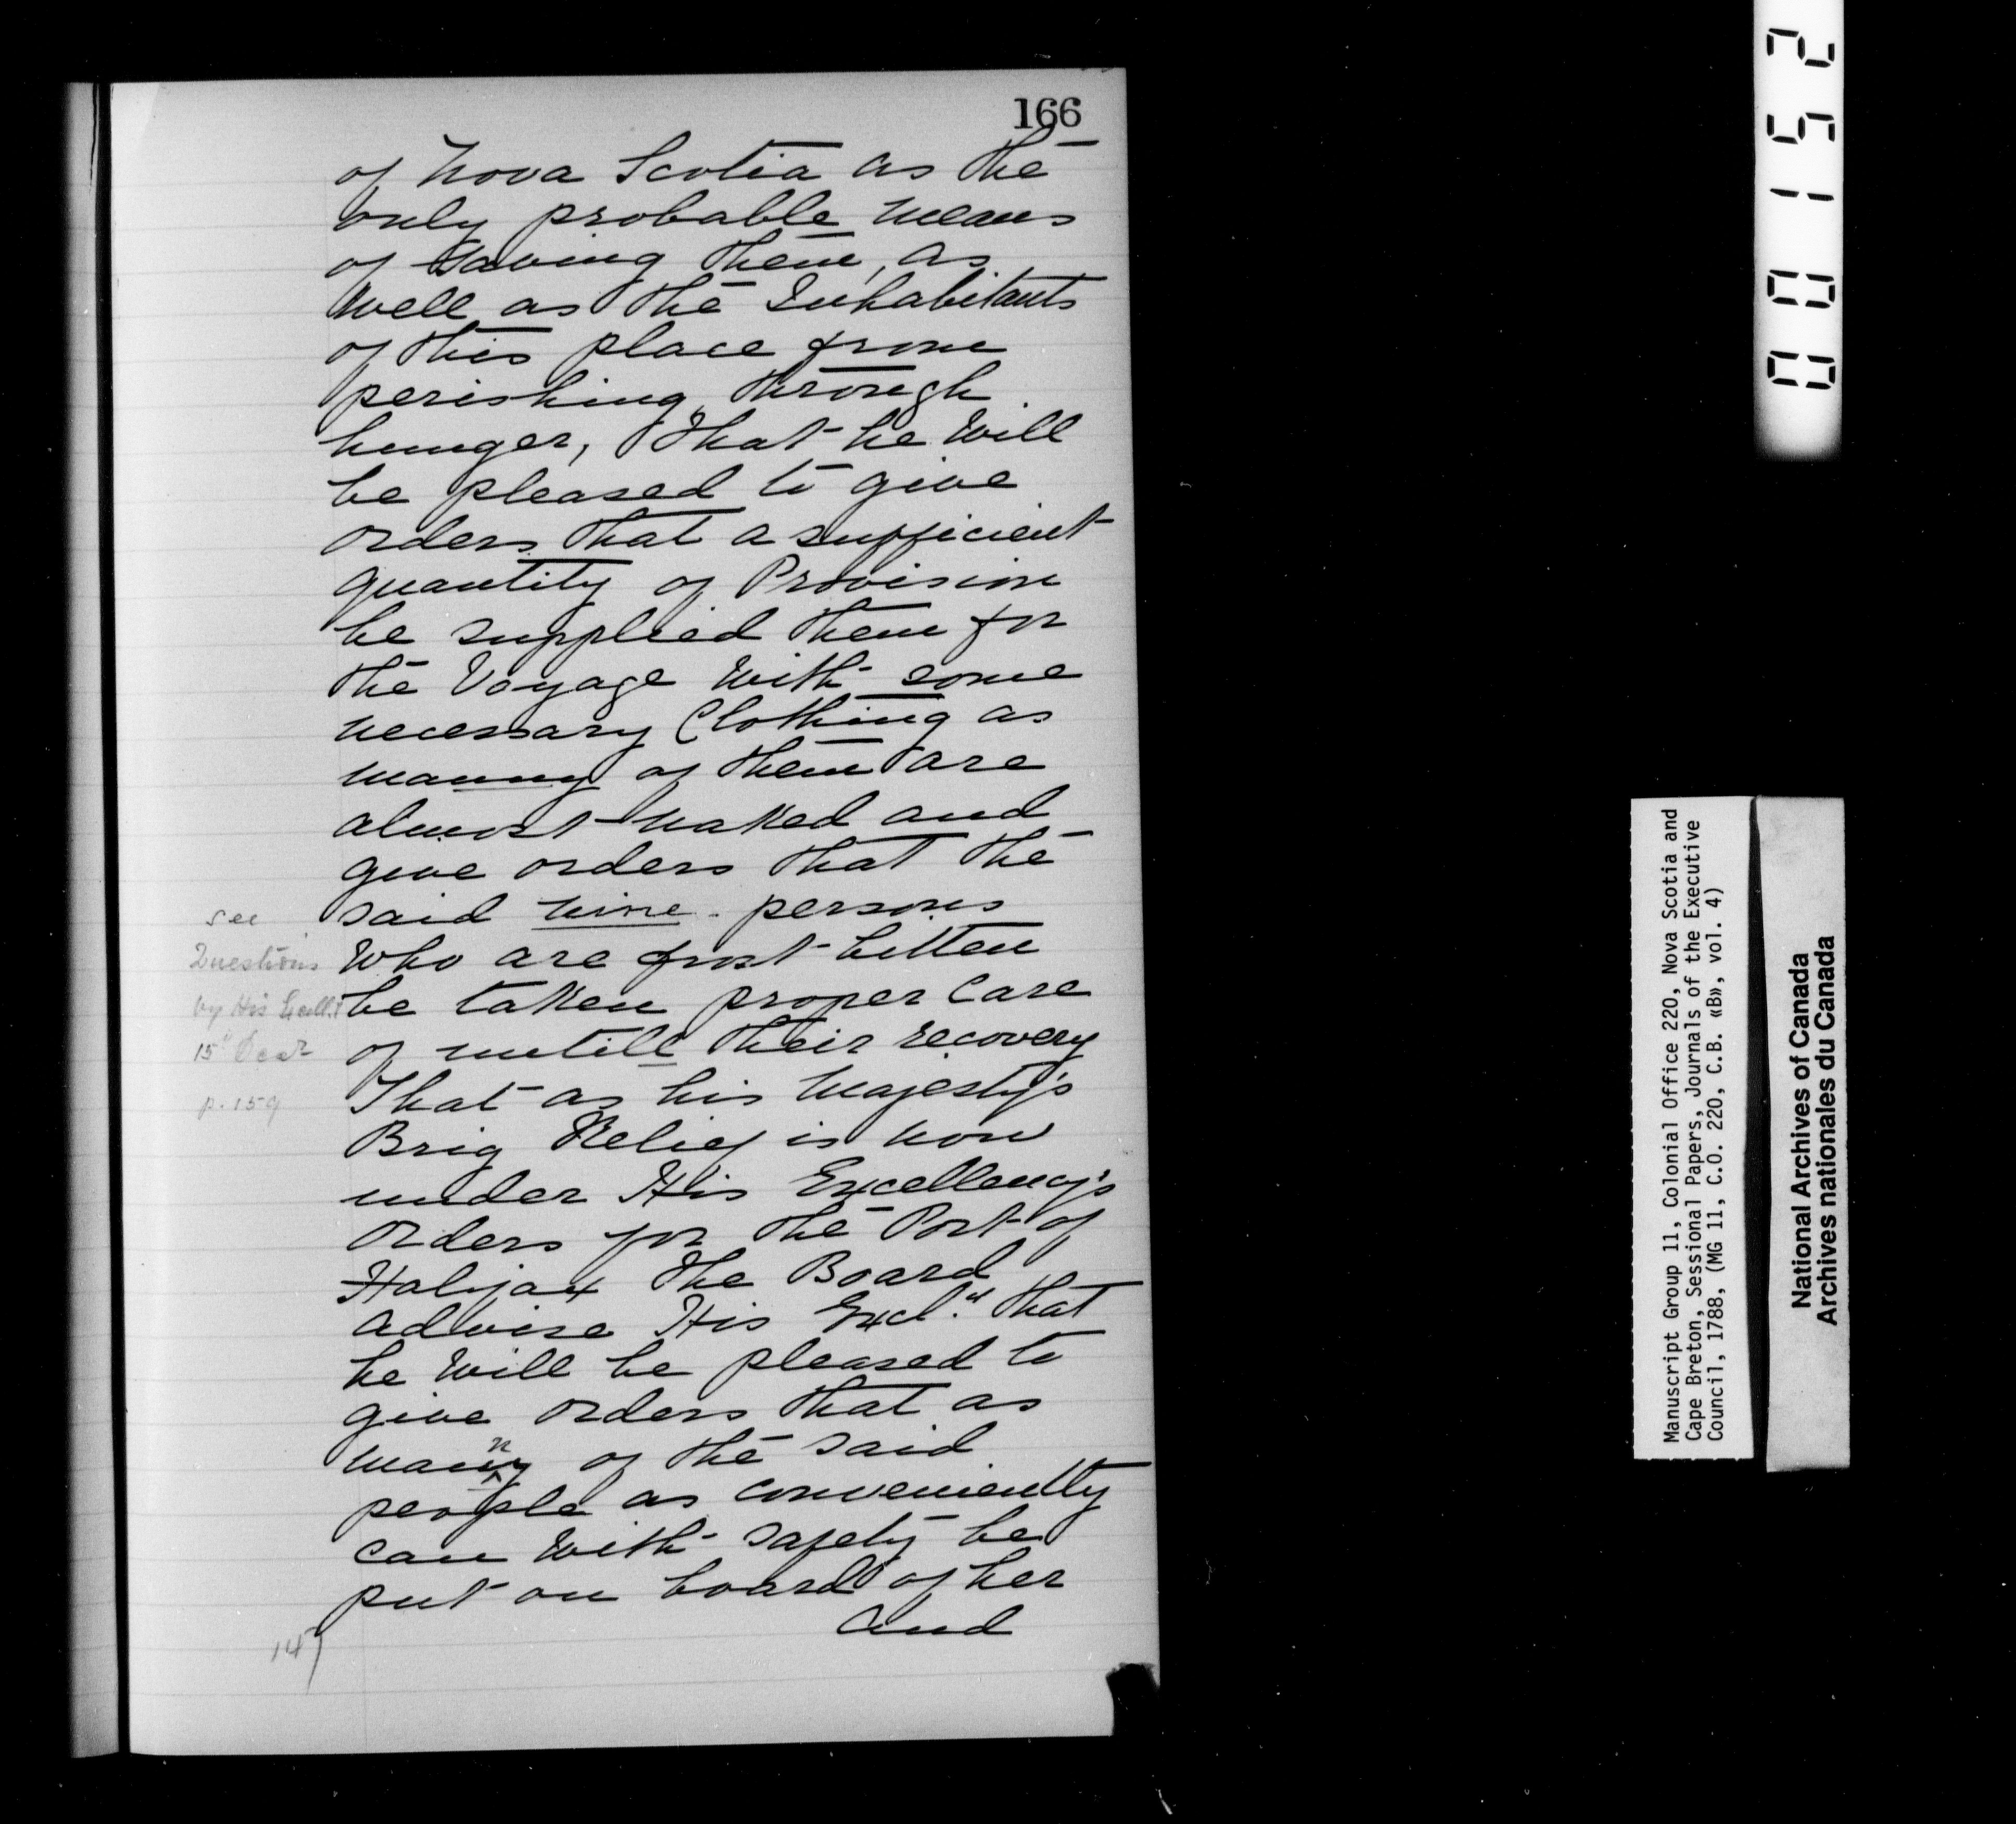 166
of Nova Scotia as the
only probable means
of saving them, as
well as the Inhabitants
of this place from
perishing through
hunger, That he Will
be pleased to give
orders that a sufficient
quantity of Provision
be supplied them for
the Voyage With some
necessary Clothing as
manny of them are
almost naked and
give orders that the
said nine persons
Who are frost bitten
be taken proper Care
of untill their recovery
That as his Majesty's
Brig Relief is now
under His Excellency's
Orders for the Port of
Halifax The Board
advise His Excl.y that
he Will be pleased to
give orders that as
manny of the said
people as conveniently
can With safety be
put on board of her
and
see
Questions
by His
15
p. 159
147
00152
Manuscript Group 11, Colonial Office 220, Nova Scotia and
Cape Breton, Sessional Papers, Journals of the Executive
Council, 1788, (MG 11, C.O. 220, C.B. «B», vol. 4)
National Archives of Canada
Archives nationales du Canada